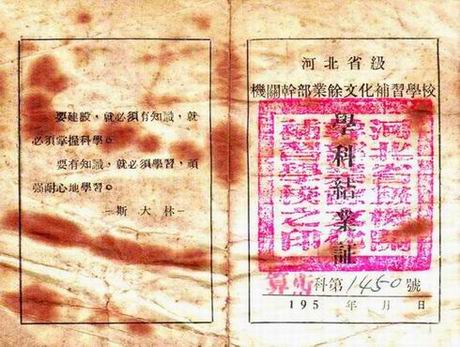 要建設，就必須有知識，就
必須掌握科學。
要有知識，就必須學習，頑
强耐心地學習。
—斯大林—
河北省級
機關幹部業餘文化補習學校
學科結業証
河北省級機關
補習學校之印
算術科第1450號
195 年 月 日